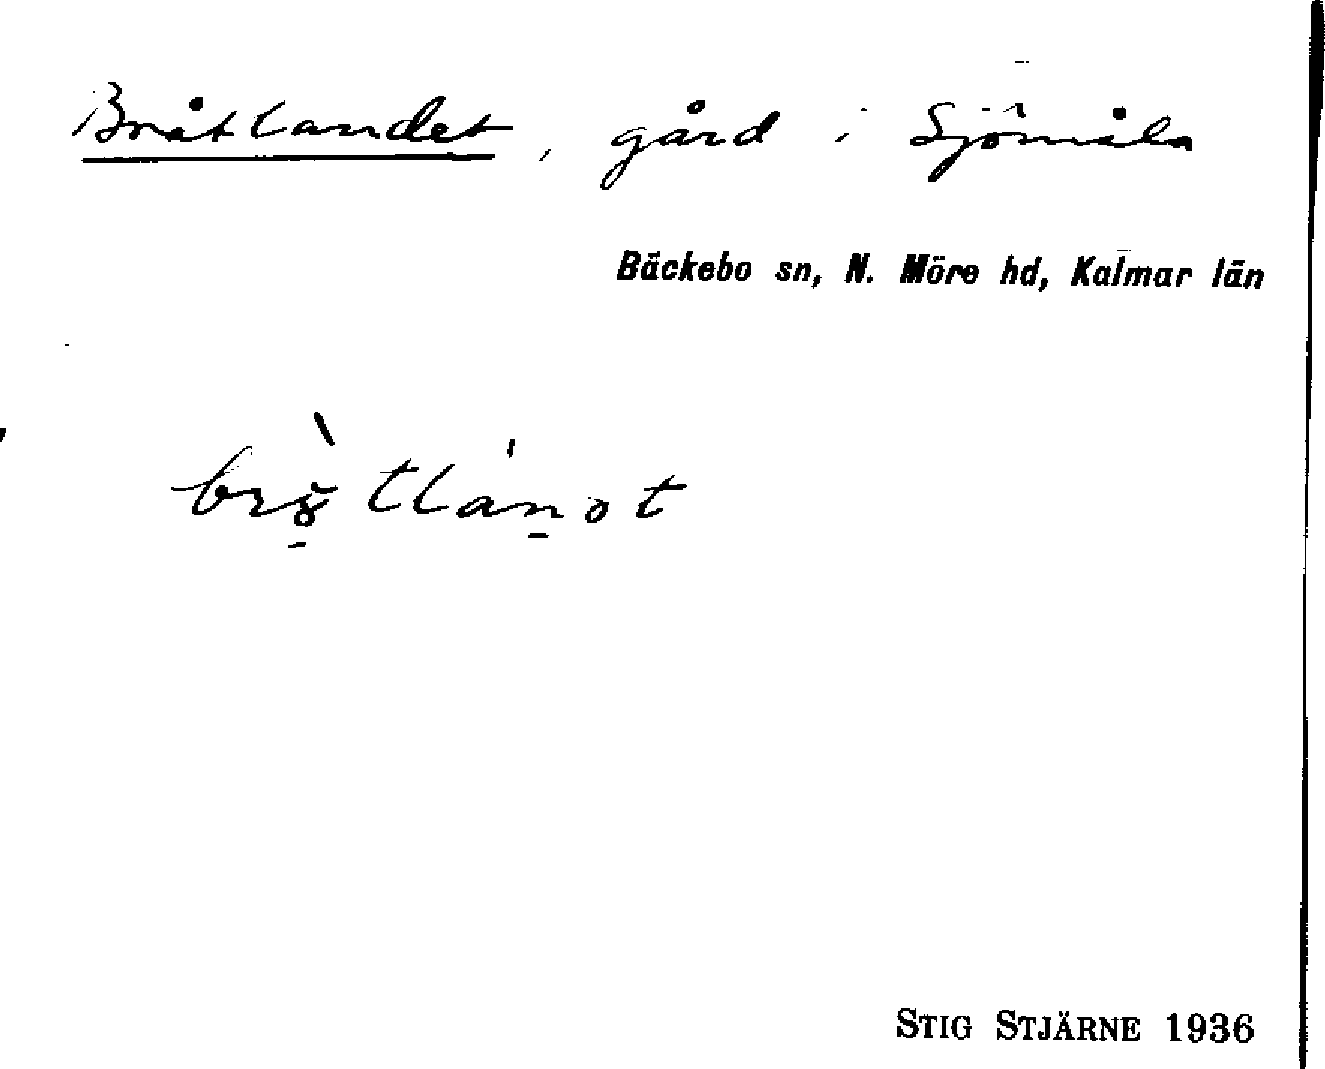 Bråtlandet, gård i Sjömåla
Bäckebo sn, N. Möre hd, Kalmar län
STIG STJÄRNE 1936